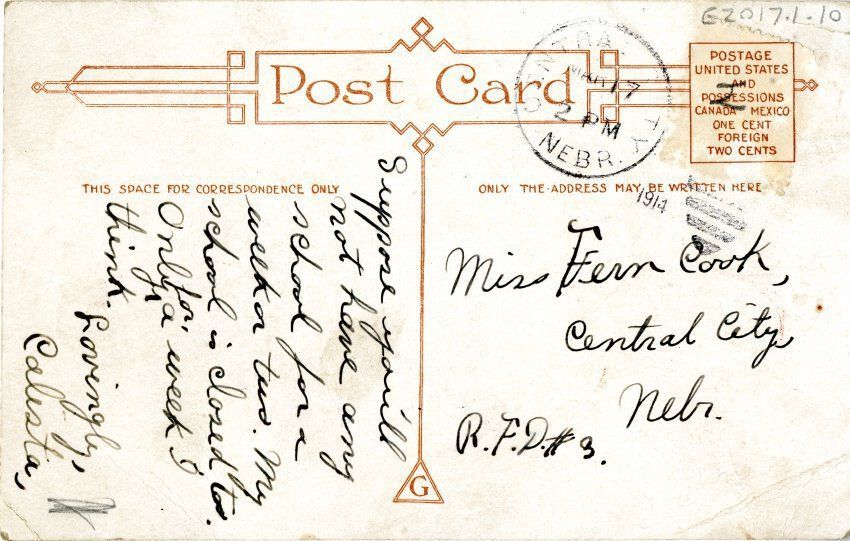 E2017.1.10
Post Card
CENTRAL CITY
MAR 17
2 PM
NEBR.
1914
POSTAGE
UNITED STATES
AND
POSSESSIONS
CANADA MEXICO
ONE CENT
FOREIGN
TWO CENTS
THIS SPACE FOR CORRESPONDENCE ONLY
ONLY THE ADDRESS MAY BE WRITTEN HERE
Suppose you'll
not have any
school for a
week or two. My
school is closed too.
Only for a week I
think.
Lovingly,
Calista,
Miss Fern Cook,
Central City,
Nebr.
R.F.D.# 3.
G